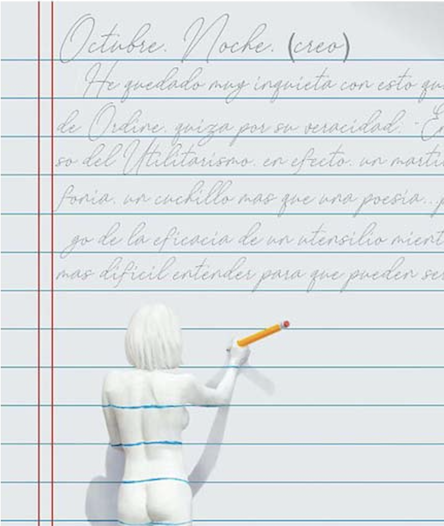 Octubre. Noche. (creo)
He quedado muy inquieta con esto qu
de Ordine, quiza por su veracidad. - E
so del Utilitarismo, en efecto, un marti
fonia, un cuchillo mas que una poesia.. p
go de la eficacia de un utensilio mient
mas dificil entender para que pueden ser